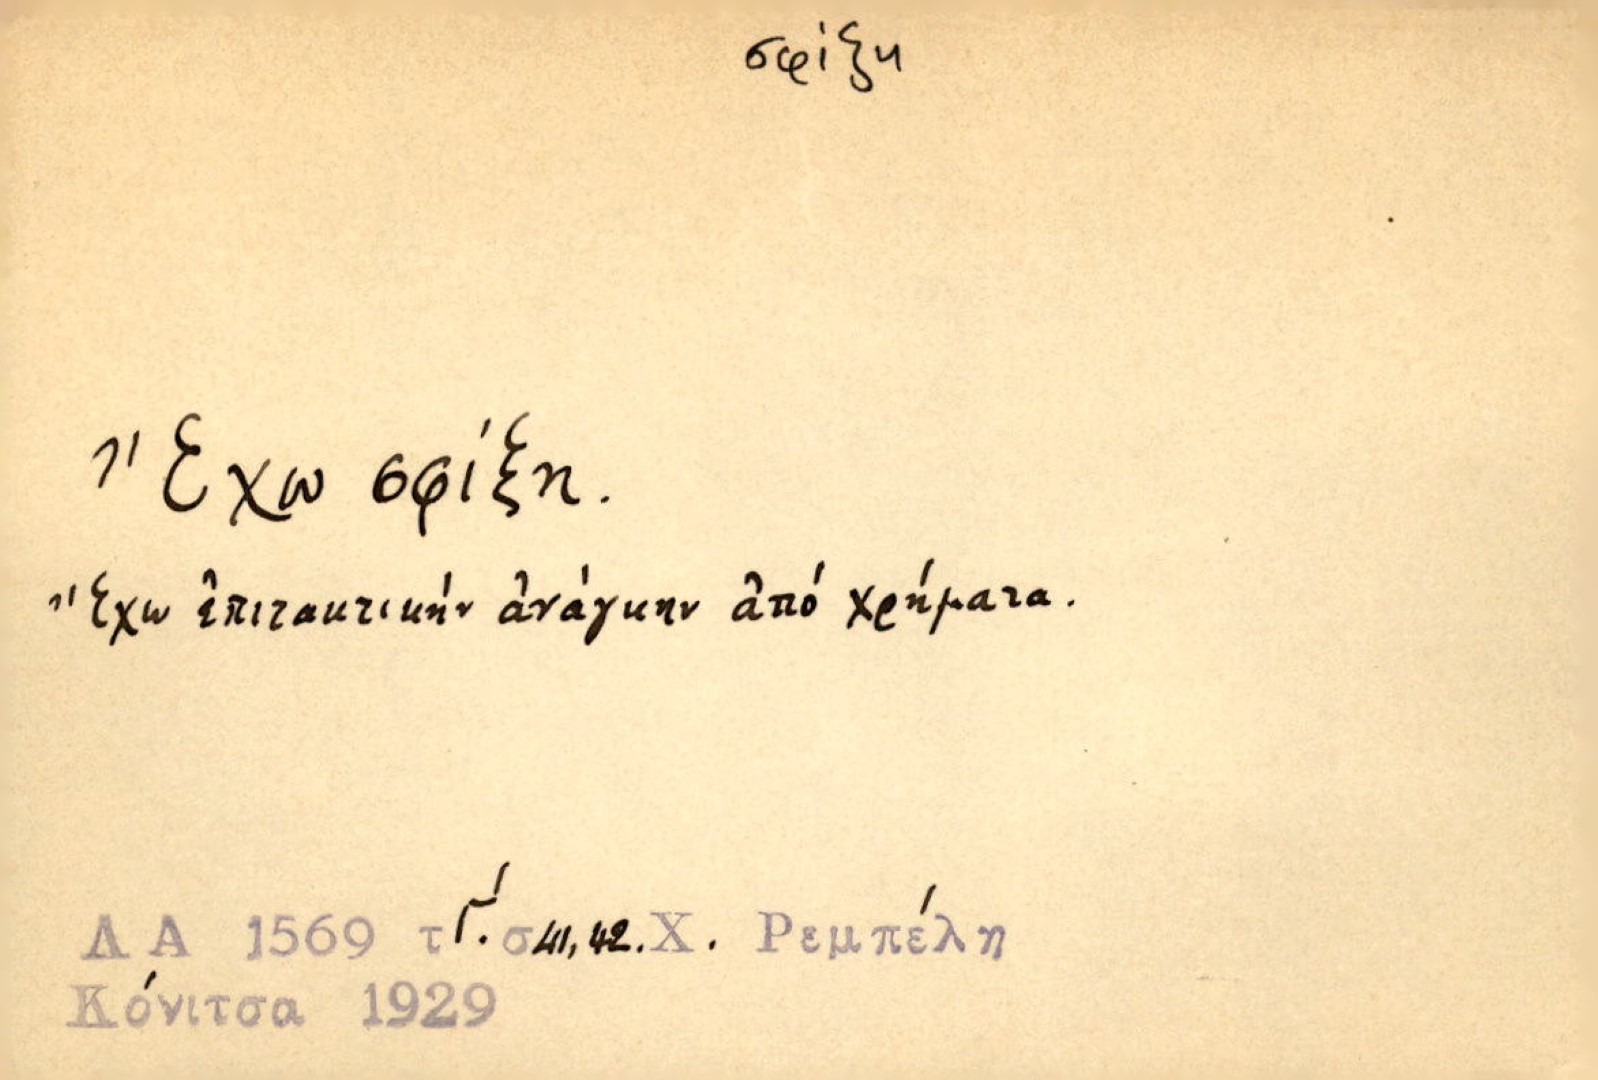 σφίξη
Ἔχω σφίξη.
Ἔχω ἐπιτακτικήν ἀνάγκην ἀπό χρήματα.
ΛΑ 1569 τΓ΄. σ 41, 42. Χ. Ρεμπέλη
Κόνιτσα 1929